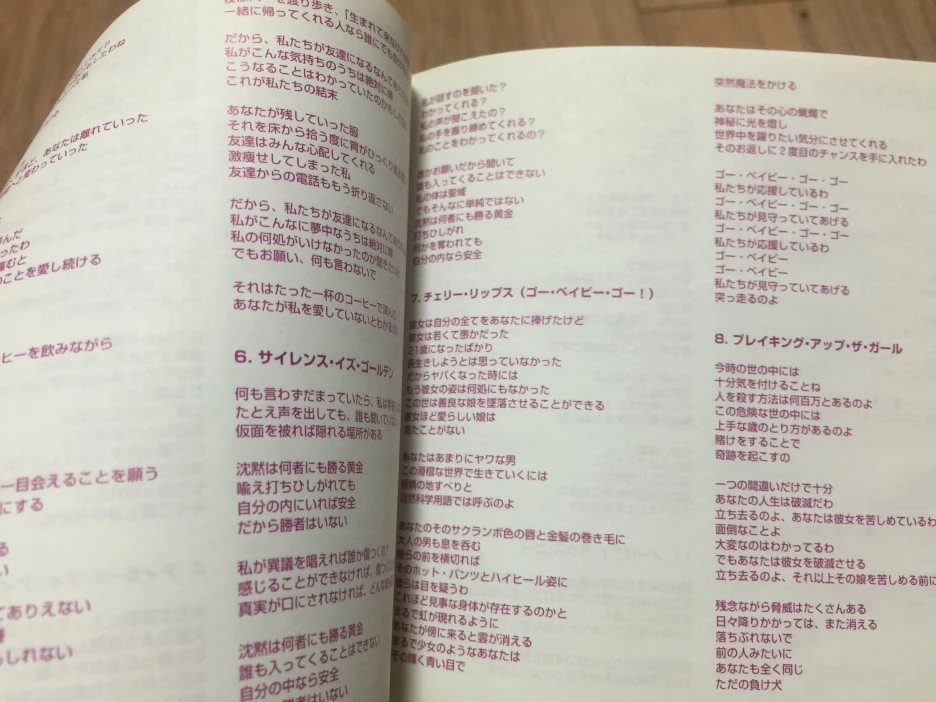 一緒に帰ってくれる人なら誰にでも
だから、私たちが友達になるなんてあり
私がこんな気持ちのうちは絶対に嫌
こうなることはわかっていたのかもし
これが私たちの結末
あなたが残していった服
それを床から拾う度に胃がひっくり
友達はみんな心配してくれる
激痩せしてしまった私
友達からの電話ももう折り返さない
だから、私たちが友達になるなんて
私がこんなに夢中なうちは絶対に嫌
私の何処がいけなかったのか
でもお願い、何も言わないで
それはたった一杯のコーヒーで
あなたが私を愛していないとわかる
あなたは離れていった
変わっていった
のことを愛し続ける
ヒーを飲みながら
一目会えることを願う
にする
てありえない
しれない
6. サイレンス・イズ・ゴールデン
何も言わずだまっていたら、私は
たとえ声を出しても、誰も聞いて
仮面を被れば隠れる場所がある
沈黙は何者にも勝る黄金
喩え打ちひしがれても
自分の内にいれば安全
だから勝者はいない
私が異議を唱えれば誰か傷つくの?
感じることができなければ、
真実が口にされなければ、
沈黙は何者にも勝る黄金
誰も入ってくることはできない
自分の中なら安全
者はいない
私が話すのを聞いた?
わかってくれる?
私の声が聞こえたの?
私の手を握り締めてくれる?
私のことをわかってくれるの?
誰かお願いだから聞いて
誰も入ってくることはできない
私の体は聖域
でもそんなに単純ではない
沈黙は何者にも勝る黄金
打ちひしがれ
何かを奪われても
自分の内なら安全
7. チェリー・リップス(ゴー・ベイビー・ゴー!)
彼女は自分の全てをあなたに捧げたけど
彼女は若くて愚かだった
21歳になったばかり
長生きしようとは思っていなかった
だからヤバくなった時には
もう彼女の姿は何処にもなかった
この世は善良な娘を墜落させることができる
彼女ほど愛らしい娘は
見たことがない
あなたはあまりにヤワな男
この滑稽な世界で生きていくには
感情の地すべりと
自然科学用語では呼ぶのよ
あなたのそのサクランボ色の唇と金髪の巻き毛に
大人の男も息を呑む
彼らの前を横切れば
そのホット・パンツとハイヒール姿に
彼らは目を疑うわ
これほど見事な身体が存在するのかと
まるで虹が現れるように
あなたが傍に来ると雲が消える
まるで少女のようなあなたは
その輝く青い目で
突然魔法をかける
あなたはその心の蝋燭で
神秘に光を燈し
世界中を躍りたい気分にさせてくれる
そのお返しに2度目のチャンスを手に入れたわ
ゴー・ベイビー・ゴー・ゴー
私たちが応援しているわ
ゴー・ベイビー・ゴー・ゴー
私たちが見守っていてあげる
ゴー・ベイビー・ゴー・ゴー
私たちが応援しているわ
ゴー・ベイビー
ゴー・ベイビー
私たちが見守っていてあげる
突っ走るのよ
8. ブレイキング・アップ・ザ・ガール
今時の世の中には
十分気を付けることね
人を殺す方法は何百万とあるのよ
この危険な世の中には
上手な歳のとり方があるのよ
賭けをすることで
奇跡を起こすの
一つの間違いだけで十分
あなたの人生は破滅だわ
立ち去るのよ、あなたは彼女を苦しめているわ
面倒なことよ
大変なのはわかってるわ
でもあなたは彼女を破滅させる
立ち去るのよ、それ以上その娘を苦しめる前に
残念ながら脅威はたくさんある
日々降りかかっては、また消える
落ちぶれないで
前の人みたいに
あなたも全く同じ
ただの負け犬